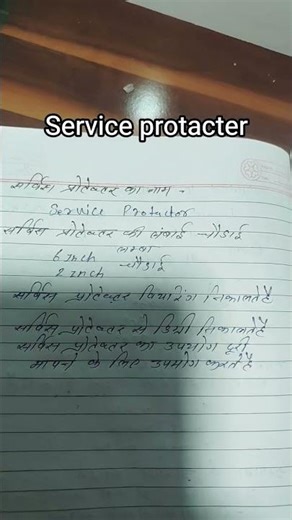 Service protacter
सर्विस प्रोटेक्टर का नाम -
Service Protactor
सर्विस प्रोटेक्टर की लंबाई - चौडाई
6 Inch लम्बा
2 Inch चौडाई
सर्विस प्रोटेक्टर बियारिंग निकालते है
सर्विस प्रोटेक्टर से डिग्री निकालते है
सर्विस प्रोटेक्टर का उपयोग दूरी
मापने के लिए उपयोग करते है